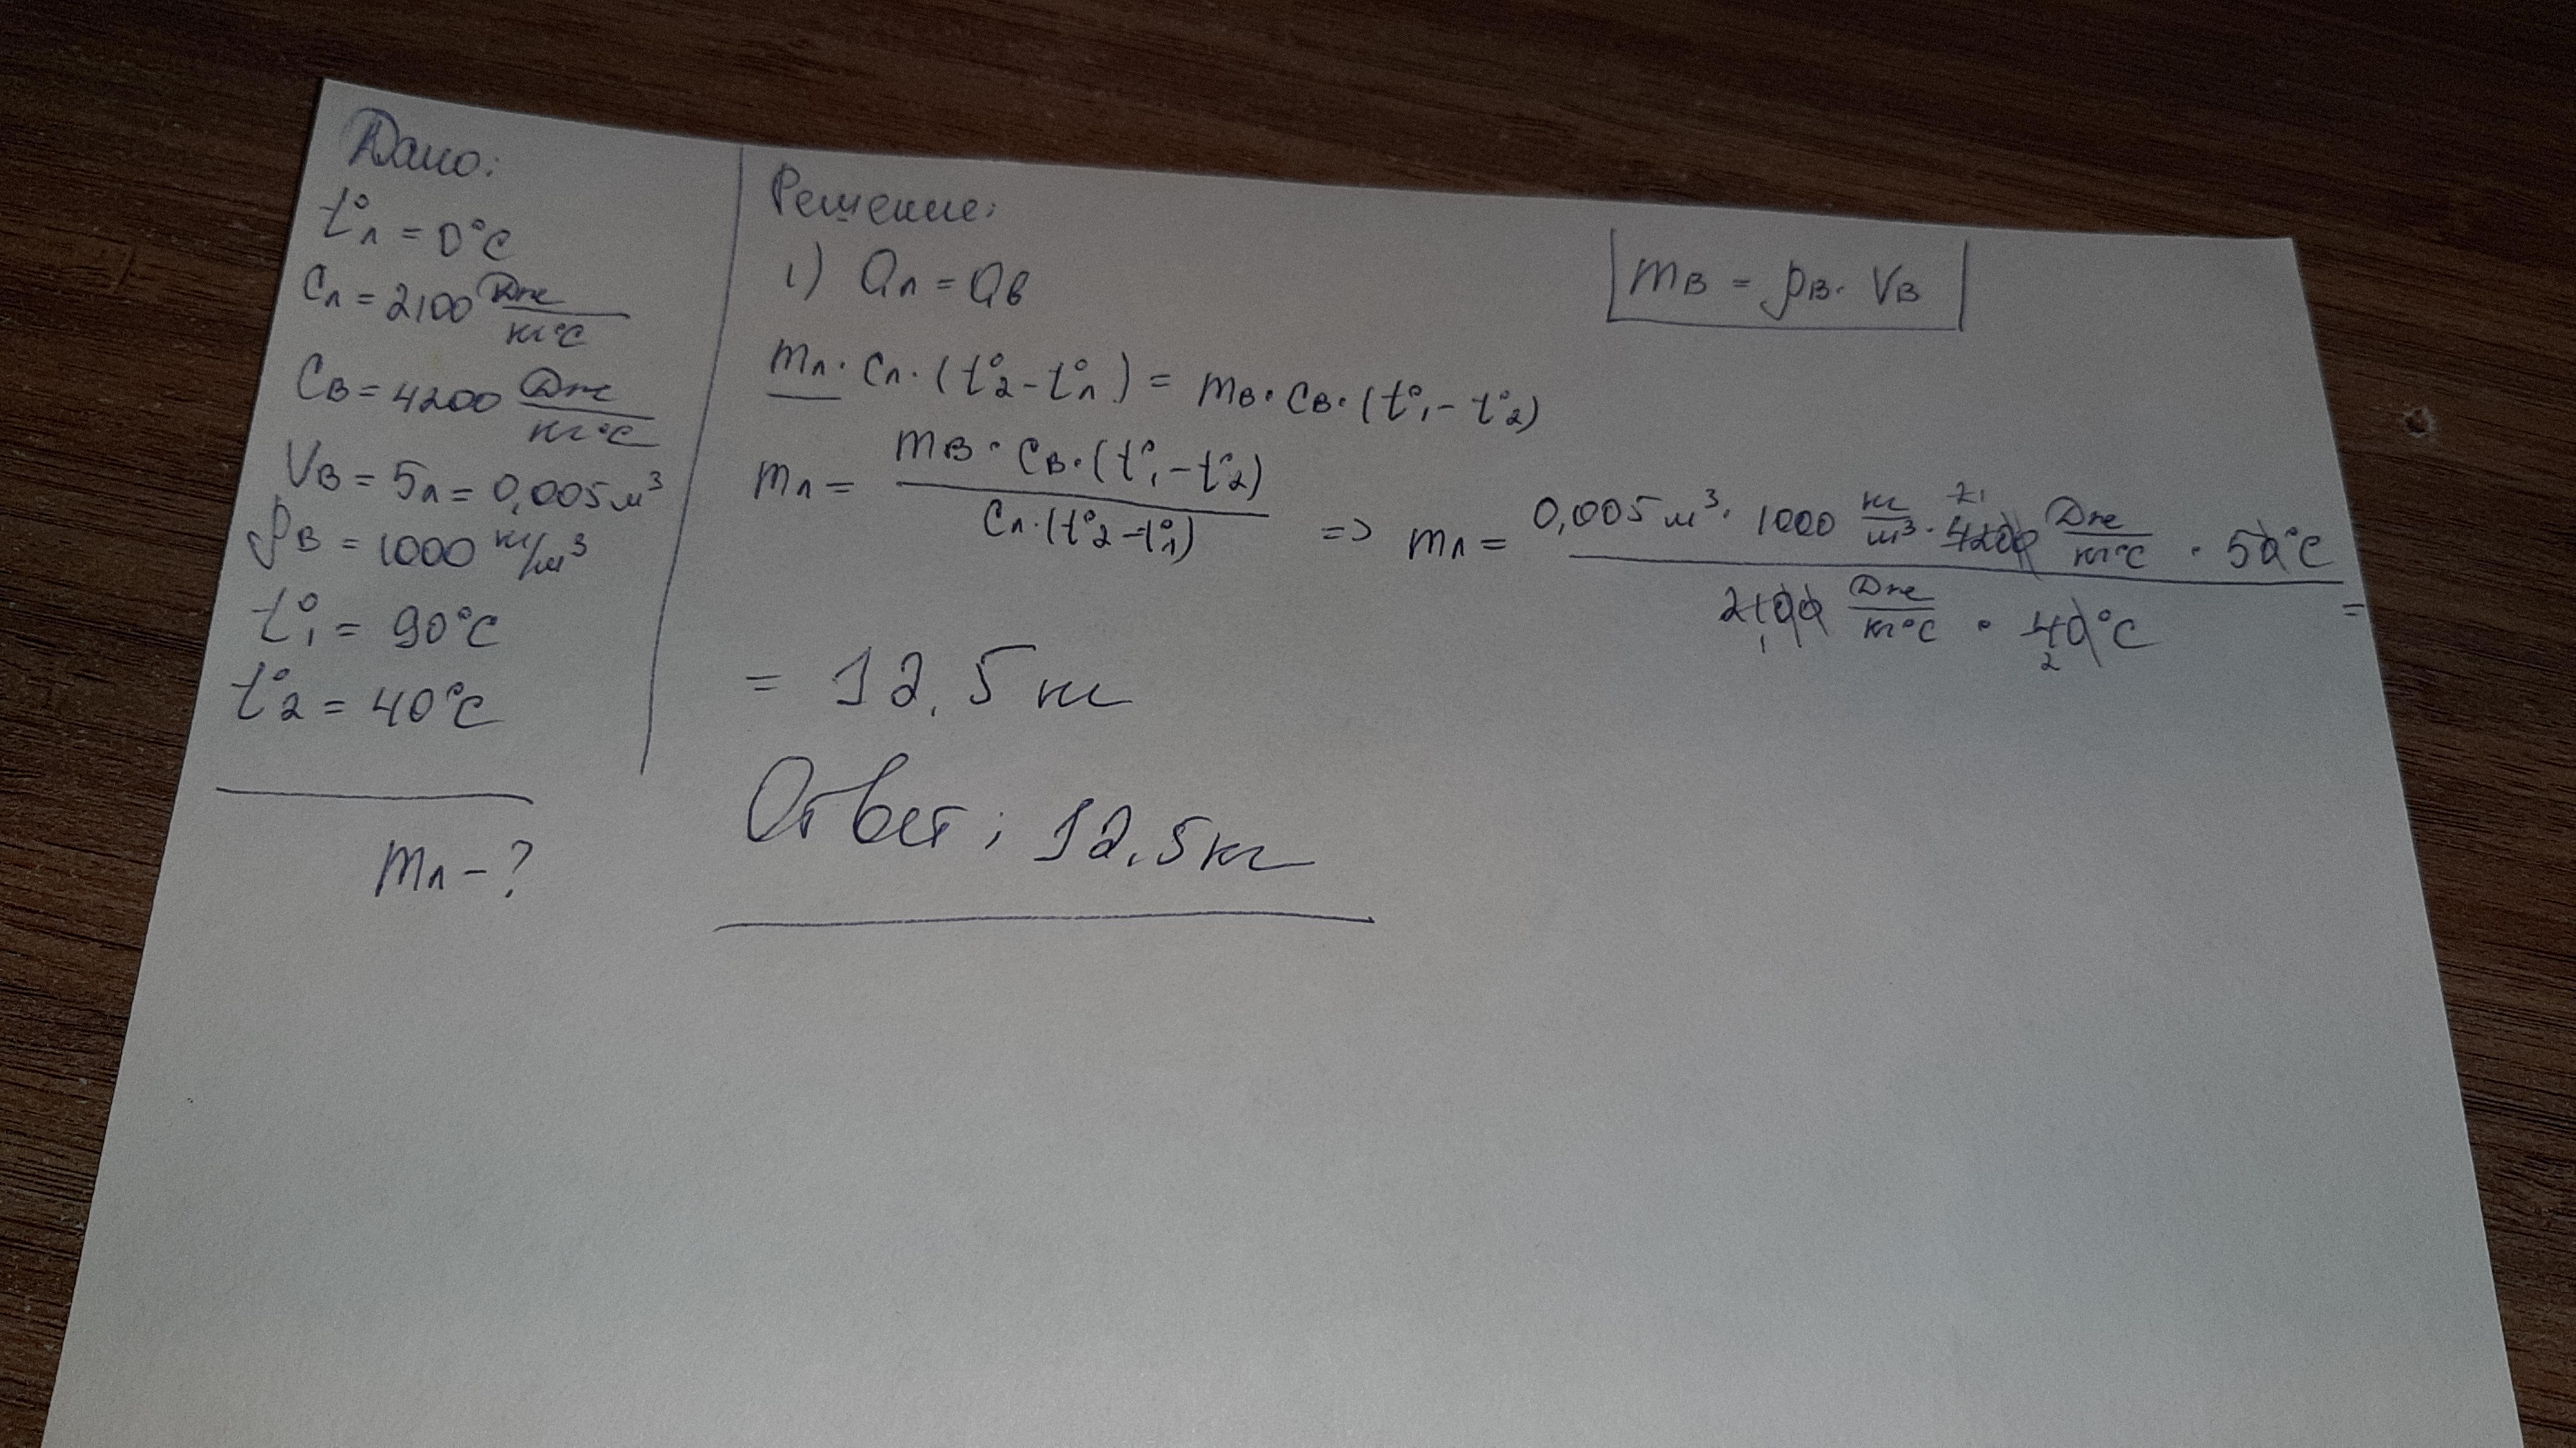 Дано:
t°л = 0°C
Cл = 2100 Дж/кг°C
Cв = 4200 Дж/кг°C
Vв = 5л = 0,005 м³
ρв = 1000 кг/м³
t°₁ = 90°C
t°₂ = 40°C
mл - ?
Решение:
1) Qл = Qв
mв = ρв · Vв
mл · Cл · (t°₂ - t°л) = mв · Cв · (t°₁ - t°₂)
mл = mв · Cв · (t°₁ - t°₂) / Cл · (t°₂ - t°л) => mл = 0,005 м³ · 1000 кг/м³ · 4200 Дж/кг°C · 50°C / 2100 Дж/кг°C · 40°C =
= 12,5 кг
Ответ: 12,5 кг